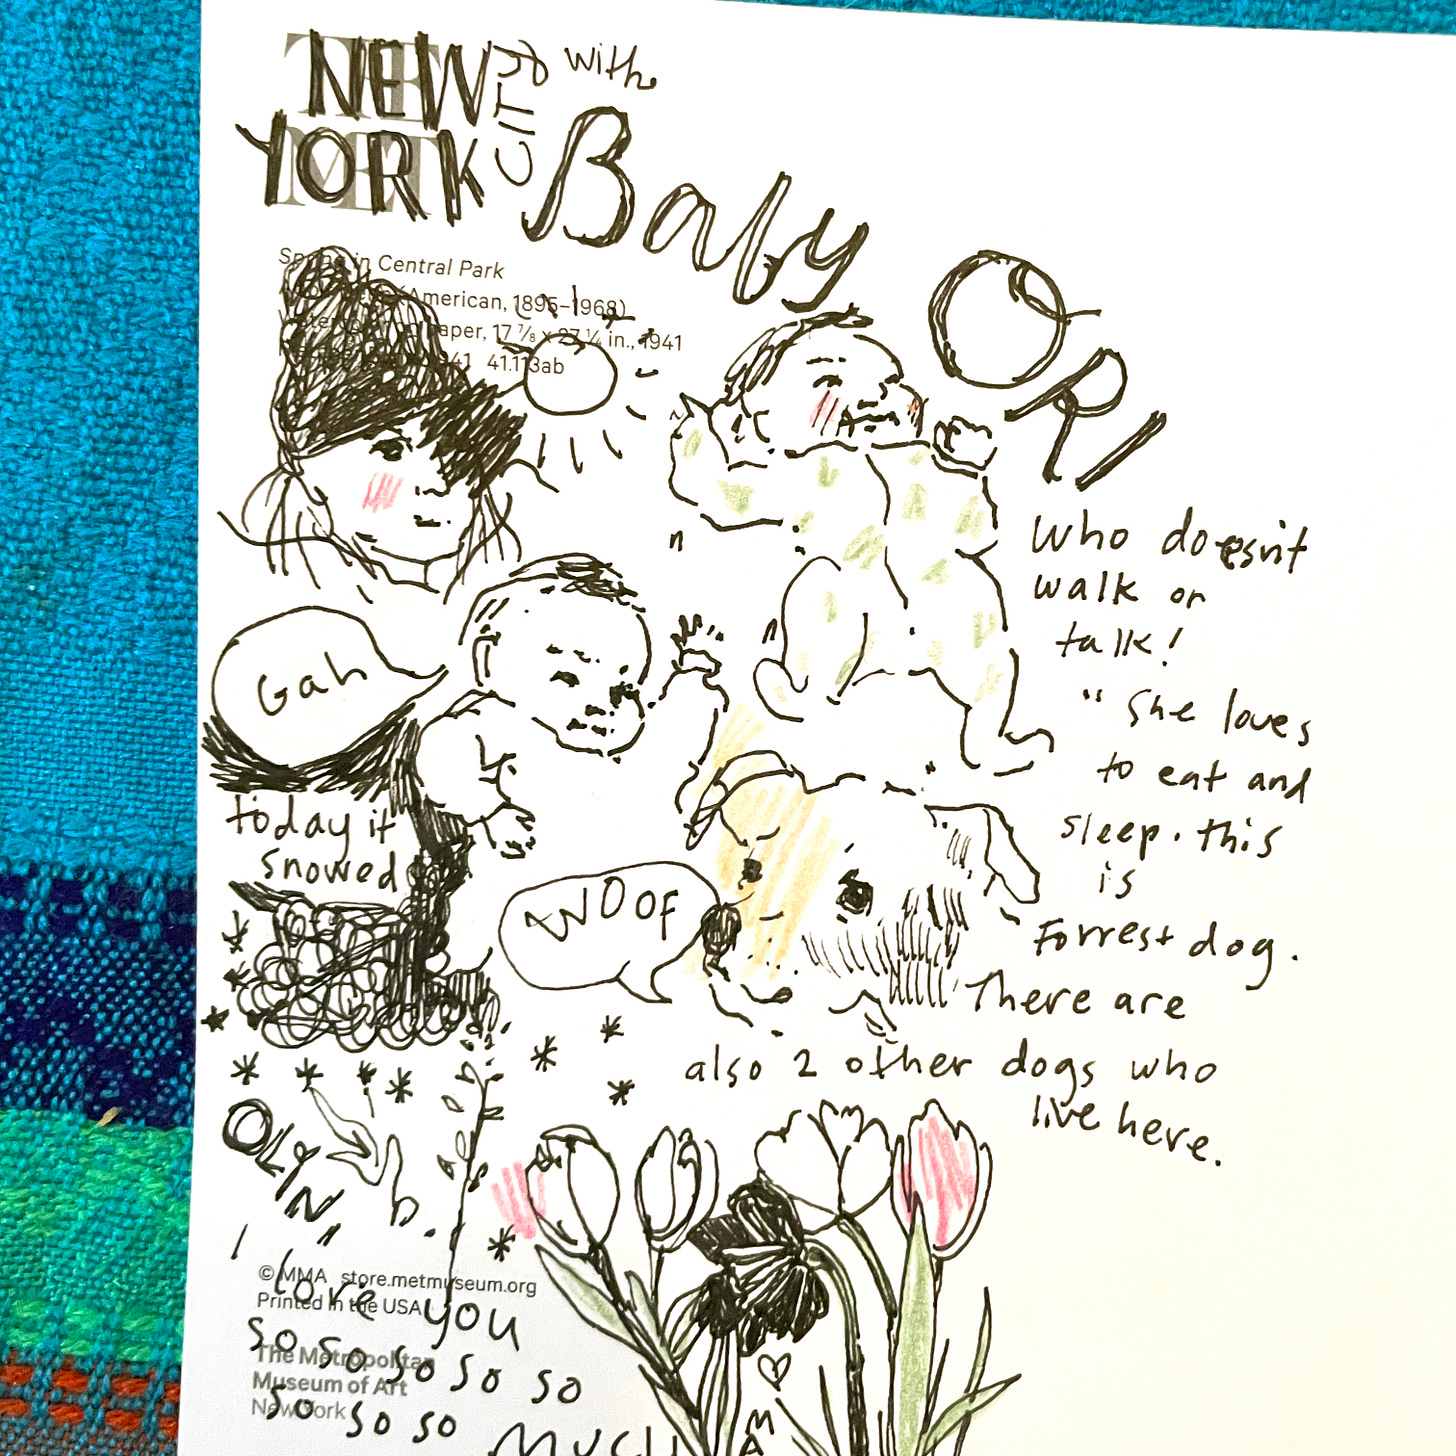 NEW
YORK
CITY
with
Baby
ORI
THE
MET
Spring in Central Park
(American, 1895–1968)
paper, 17 ⅞ x 27 ¼ in., 1941
41.113ab
who doesn't
walk or
talk!
"She loves
to eat and
sleep. this
is
Forrest dog.
There are
also 2 other dogs who
live here.
Gah
today it
snowed
WOOF
OLIN,
I love you
so so so so so
so so so much
© MMA store.metmuseum.org
Printed in the USA
The Metropolitan
Museum of Art
New York